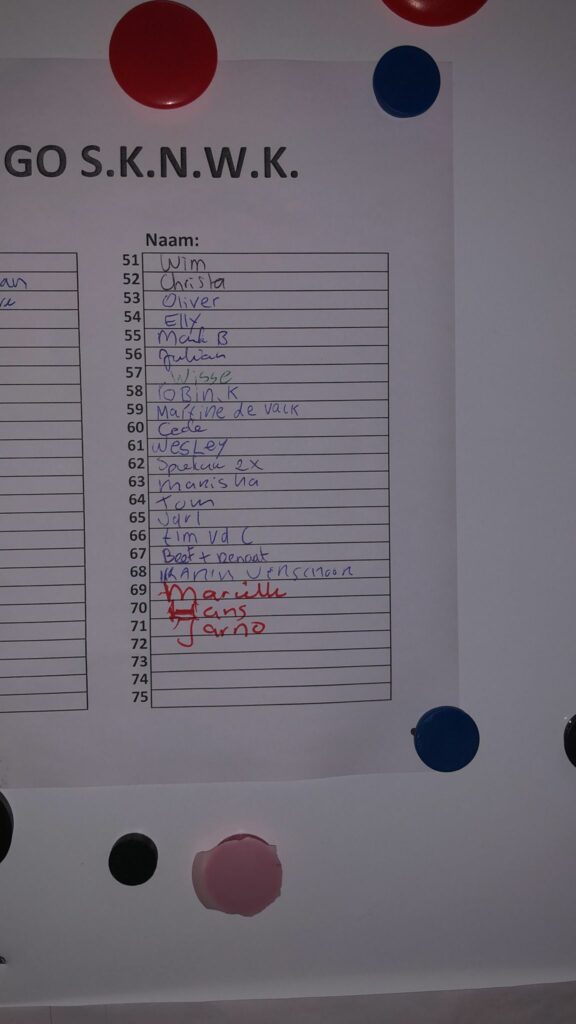 GO S.K.N.W.K.
Naam:
51 Wim
52 Christa
53 Oliver
54 Elly
55 Mark B
56 Julian
57 Wisse
58 ROBIN.K
59 Martine de Valk
60 Cede
61 WESLEY
62 2X
63 Manisha
64 Tom
65 Jarl
66 tim vd C
67 Beef + Denoat
68 KARIN
69 Marielle
70 Hans
71 Jarno
72
73
74
75